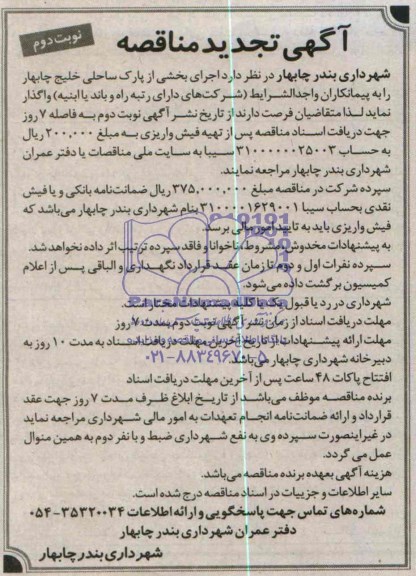 نوبت دوم
آگهی تجدید مناقصه
شهرداری بندر چابهار در نظر دارد اجرای بخشی از پارک ساحلی خلیج چابهار
را به پیمانکاران واجدالشرایط (شرکت‌های دارای رتبه راه و باند یا ابنیه) واگذار
نماید لذا متقاضیان فرصت دارند از تاریخ نشر آگهی نوبت دوم به فاصله ۷ روز
جهت دریافت اسناد مناقصه پس از تهیه فیش واریزی به مبلغ ۲۰۰,۰۰۰ ریال
به حساب ۳۱۰۰۰۰۰۰۲۵۰۰۳ سیبا به سایت ملی مناقصات یا دفتر عمران
شهرداری بندر چابهار مراجعه نمایند.
سپرده شرکت در مناقصه مبلغ ۳۷۵,۰۰۰,۰۰۰ ریال ضمانت‌نامه بانکی و یا فیش
نقدی بحساب سیبا ۳۱۰۰۰۰۱۶۲۹۰۰۱ بنام شهرداری بندر چابهار می‌باشد که
فیش واریزی باید به تایید امور مالی برسد.
به پیشنهادات مخدوش، مشروط، ناخوانا و فاقد سپرده ترتیب اثر داده نخواهد شد.
سپرده نفرات اول و دوم تا زمان عقد قرارداد نگهداری و الباقی پس از اعلام
کمیسیون برگشت داده می‌شود.
شهرداری در رد یا قبول یک یا کلیه پیشنهادات مختار است.
مهلت دریافت اسناد از زمان نشر آگهی نوبت دوم بمدت ۷ روز
مهلت ارائه پیشنهادات از تاریخ آخرین مهلت دریافت اسناد به مدت ۱۰ روز به
دبیرخانه شهرداری چابهار می‌باشد.
۰۲۱-۸۸۳۴۹۶۷۰-۵
افتتاح پاکات ۴۸ ساعت پس از آخرین مهلت دریافت اسناد
برنده مناقصه موظف می‌باشد از تاریخ ابلاغ ظرف مدت ۷ روز جهت عقد
قرارداد و ارائه ضمانت‌نامه انجام تعهدات به امور مالی شهرداری مراجعه نماید
در غیر اینصورت سپرده وی به نفع شهرداری ضبط و با نفر دوم به همین منوال
عمل می گردد.
هزینه آگهی بعهده برنده مناقصه می‌باشد.
سایر اطلاعات و جزییات در اسناد مناقصه درج شده است.
شماره‌های تماس جهت پاسخگویی و ارائه اطلاعات ۳۵۳۲۰۰۳۴-۰۵۴
دفتر عمران شهرداری بندر چابهار
شهرداری بندر چابهار